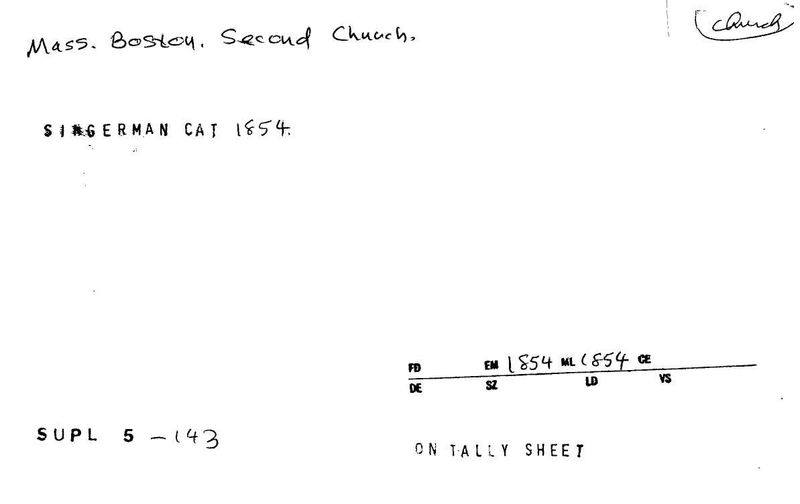 church
Mass. Boston. Second Church.
SINGERMAN CAT 1854.
FD EM 1854 ML 1854 CE
DE SZ LD VS
SUPL 5 -143
ON TALLY SHEET